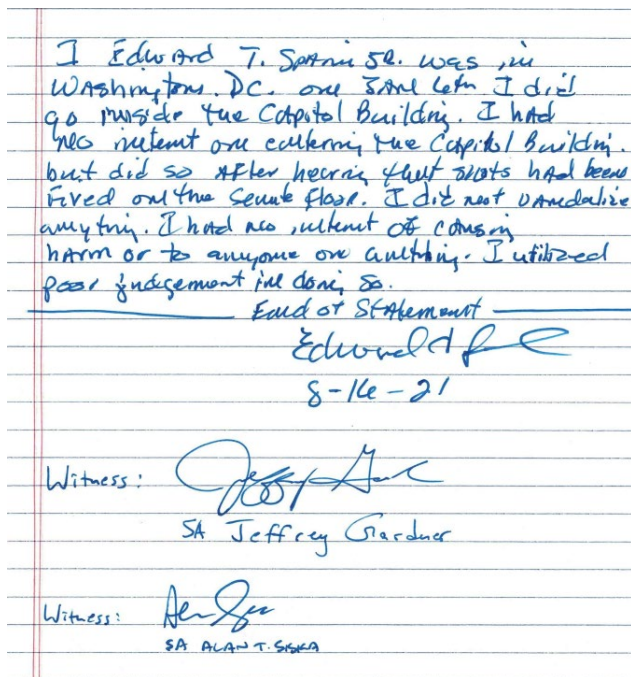 I Edward T. Spain SR. was in
Washington. DC. on JAN 6th I did
go inside the Capitol Building. I had
no intent on entering the Capitol Buildin.
but did so After hearing that shots had been
Fired on the Senate floor. I did not vandalize
anything. I had no intent of causing
harm or to anyone or anything. I utilized
poor judgement in doing so.
End of Statement
8-16-21
Witness:
SA Jeffrey Gardner
Witness:
SA ALAN T. SISKA